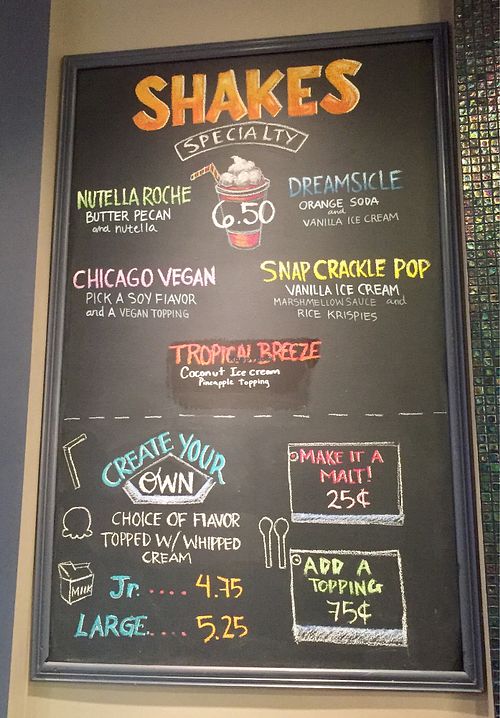 SHAKES
SPECIALTY
6.50
NUTELLA ROCHE
BUTTER PECAN
and nutella
DREAMSICLE
ORANGE SODA
and
VANILLA ICE CREAM
CHICAGO VEGAN
PICK A SOY FLAVOR
and A VEGAN TOPPING
SNAP CRACKLE POP
VANILLA ICE CREAM
MARSHMELLOW SAUCE and
RICE KRISPIES
TROPICAL BREEZE
Coconut Ice cream
Pineapple Topping
CREATE YOUR
OWN
CHOICE OF FLAVOR
TOPPED W/ WHIPPED
CREAM
MILK
Jr. .... 4.75
LARGE.... 5.25
MAKE IT A
MALT!
25¢
ADD A
TOPPING
75¢